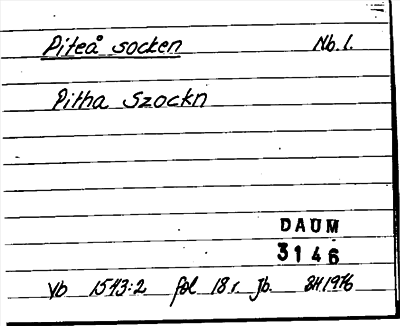 Piteå socken Nb. l.
Pitha Szockn
DAUM
3146
Vb 1543:2 fol 18 r. Jb. 1976